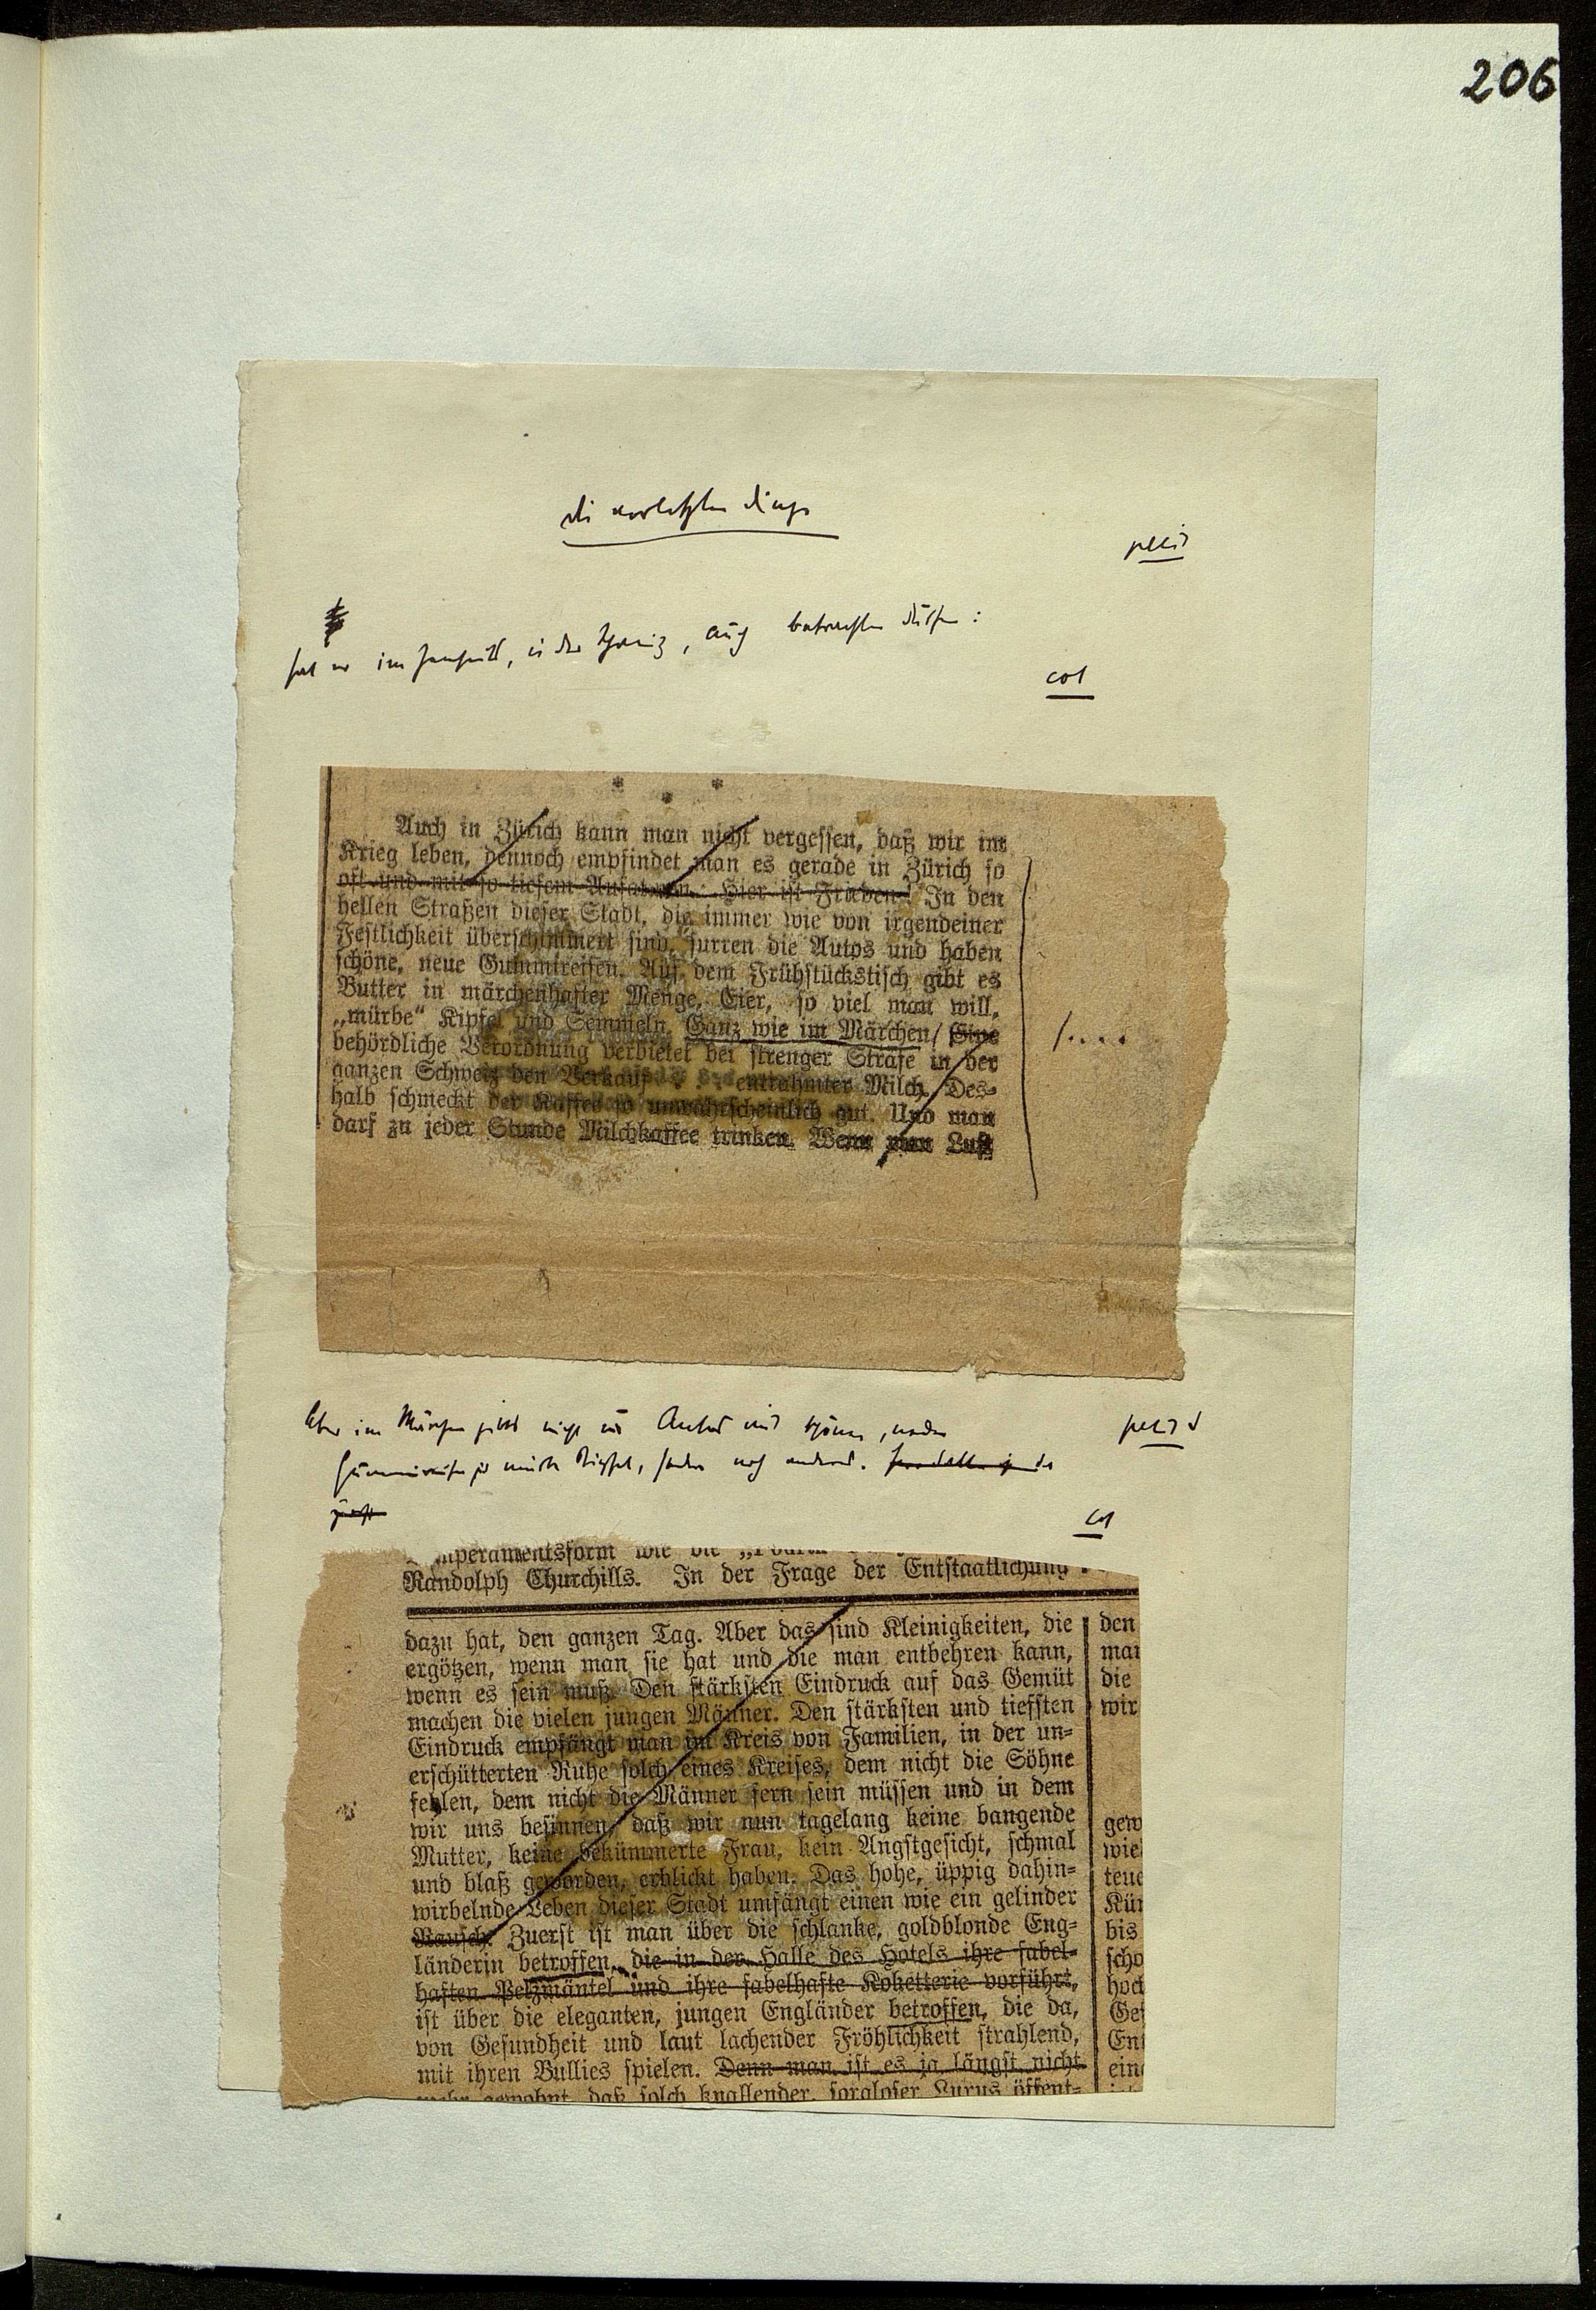 206
die vorletzten Dinge
petit
hat er im Zensurstil, in der Schweiz, auch betrachten dürfen:
col
* * *
Auch in Zürich kann man nicht vergessen, daß wir im
Krieg leben, dennoch empfindet man es gerade in Zürich so
oft und mit so tiefem Aufatmen: Hier ist Frieden! In den
hellen Straßen dieser Stadt, die immer wie von irgendeiner
Festlichkeit überschimmert sind, surren die Autos und haben
schöne, neue Gummireifen. Auf dem Frühstückstisch gibt es
Butter in märchenhafter Menge, Eier, so viel man will,
„mürbe“ Kipfel und Semmeln. Ganz wie im Märchen/ Eine
behördliche Verordnung verbietet bei strenger Strafe in der
/....
ganzen Schweiz den Verkauf . . . entrahmter Milch. Des-
halb schmeckt der Kaffee so unwahrscheinlich gut. Und man
darf zu jeder Stunde Milchkaffee trinken. Wenn man Lust
Aber im Märchen gibts nicht nur Autos mit schönen, neuen
petit
Gummireifen und mürbe Kipfel, sondern noch anderes.
col
Randolph Churchills. In der Frage der Entstaatlichung
dazu hat, den ganzen Tag. Aber das sind Kleinigkeiten, die
ergötzen, wenn man sie hat und die man entbehren kann,
wenn es sein muß. Den stärksten Eindruck auf das Gemüt
machen die vielen jungen Männer. Den stärksten und tiefsten
Eindruck empfängt man im Kreis von Familien, in der un-
erschütterten Ruhe solch eines Kreises, dem nicht die Söhne
fehlen, dem nicht die Männer fern sein müssen und in dem
wir uns besinnen, daß wir nun tagelang keine bangende
Mutter, keine bekümmerte Frau, kein Angstgesicht, schmal
und blaß geworden, erblickt haben. Das hohe, üppig dahin-
wirbelnde Leben dieser Stadt umfängt einen wie ein gelinder
Rausch. Zuerst ist man über die schlanke, goldblonde Eng-
länderin betroffen, die in der Halle des Hotels ihre fabel-
haften Pelzmäntel und ihre fabelhafte Koketterie vorführt,
ist über die eleganten, jungen Engländer betroffen, die da,
von Gesundheit und laut lachender Fröhlichkeit strahlend,
mit ihren Bullies spielen. Denn man ist es ja längst nicht
mehr gewohnt, daß solch knallender, sorgloser Luxus öffent-
den
man
die
wir
gew
wie
teue
Kün
bis
scho
hoch
Ges
Eng
eine